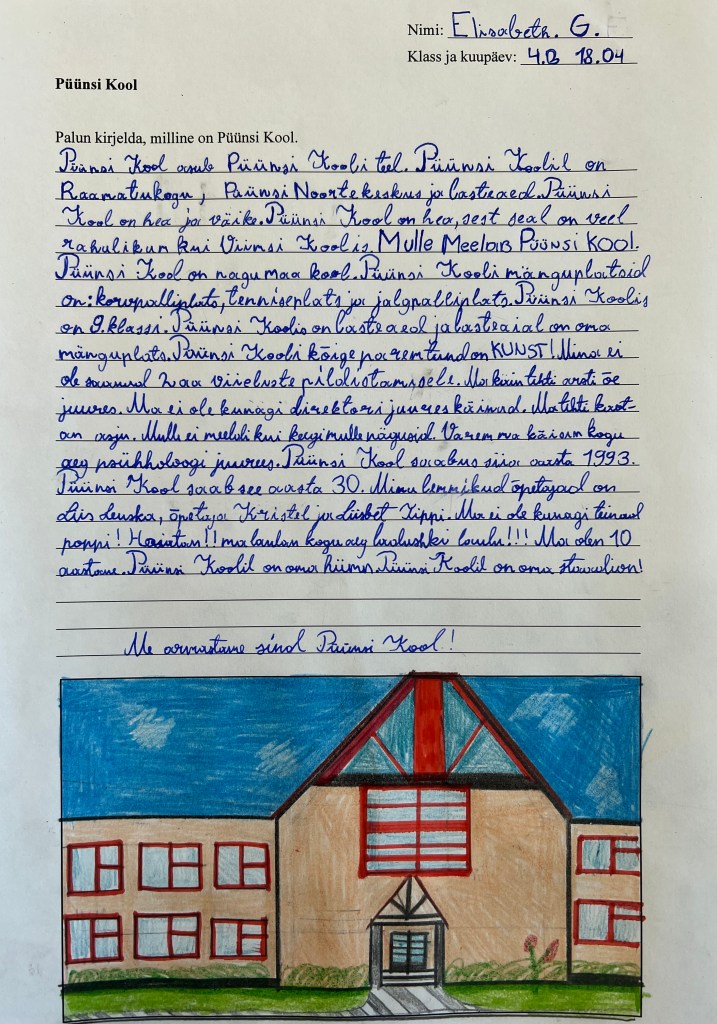 Nimi: Elisabeth. G.
Klass ja kuupäev: 4.B 18.04
Püünsi Kool
Palun kirjelda, milline on Püünsi Kool.
Püünsi Kool asub Püünsi Kooli teel. Püünsi Koolil on
Raamatukogu, Püünsi Noortekeskus ja lasteaed. Püünsi
Kool on hea ja väike. Püünsi Kool on hea, sest seal on veel
rahulikum kui Viimsi Koolis. Mulle Meeldib Püünsi KOOl.
Püünsi Kool on nagu maa kool. Püünsi Kooli mänguplatsid
on: korvpalliplats, tenniseplats ja jalgpalliplats. Püünsi Koolis
on 9. klassi. Püünsi Koolis on lasteaed ja lasteaial on oma
mänguplats. Püünsi Kooli kõige parem tund on KUNST! Mina ei
ole saanud pildistamisele. Ma käin tihti arsti õe
juures. Ma ei ole kunagi direktori juures käinud. Ma tihti kaot-
an asju. Mulle ei meeldi kui keegi mulle nägusid. Varem ma käisin kogu
aeg psühholoogi juures. Püünsi Kool saabus siia aasta 1993.
Püünsi Kool saab see aasta 30. Minu lemmikud õpetajad on
Liis õpetaja Kristel ja Liisbet Tippi. Ma ei ole kunagi teinud
poppi! Hoiatan!! ma laulan kogu aeg ladushki laulu!!! Ma olen 10
aastane. Püünsi Koolil on oma hümn. Püünsi Koolil on oma staadion!
Me armastame sind Püünsi Kool!